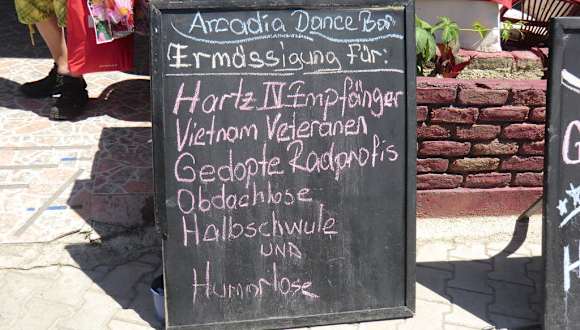 Arcadia Dance Bar
Ermässigung Für:
Hartz IV Empfänger
Vietnam Veteranen
Gedopte Radprofis
Obdachlose
Halbschwule
UND
Humorlose